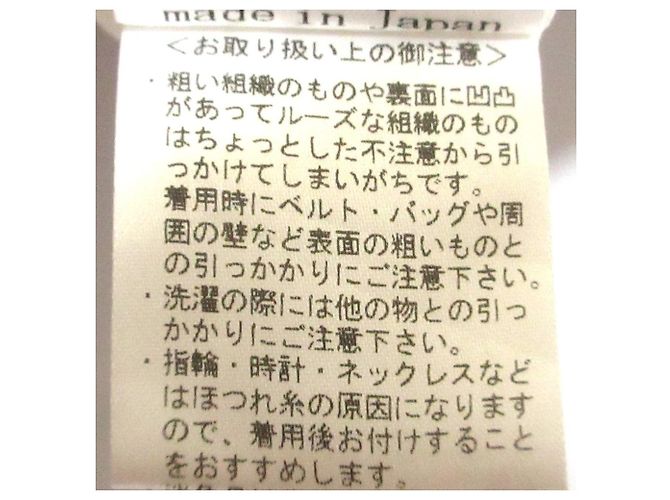 made in Japan
<お取り扱い上の御注意>
・粗い組織のものや裏面に凹凸
があってルーズな組織のもの
はちょっとした不注意から引
っかけてしまいがちです。
着用時にベルト・バッグや周
囲の壁など表面の粗いものと
の引っかかりにご注意下さい。
・洗濯の際には他の物との引っ
かかりにご注意下さい。
・指輪・時計・ネックレスなど
はほつれ糸の原因になります
ので、着用後お付けすること
をおすすめします。